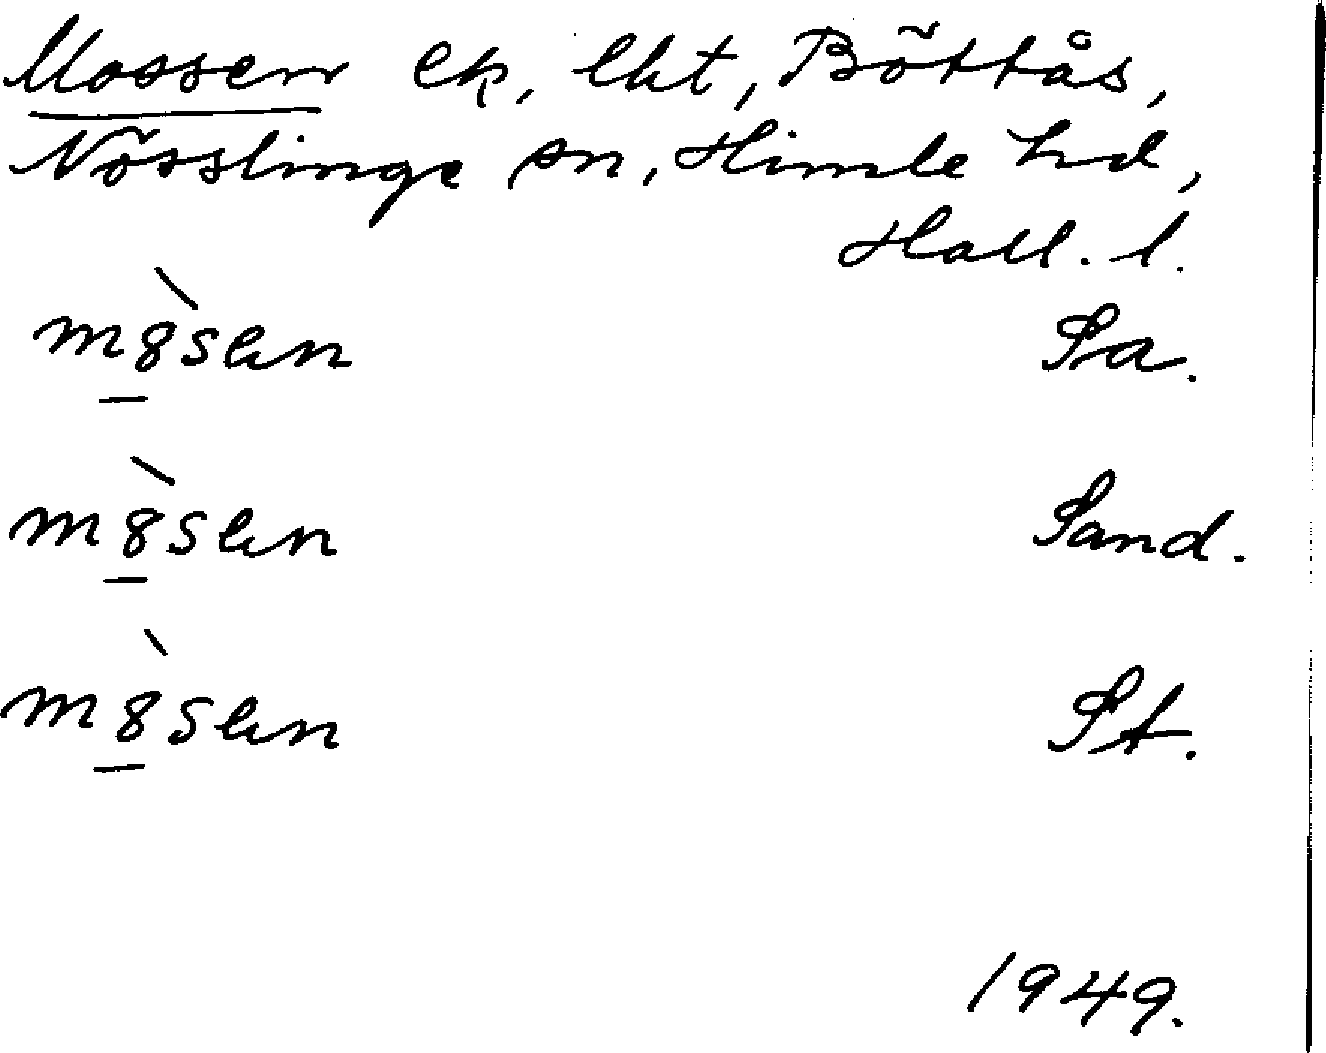 Mossen ek, lht, Böttås,
Nösslinge sn, Himle hd,
Hall. l.
m8̲̀sen Sa.
m8̲̀sen Sand.
m8̲̀sen St.
1949.